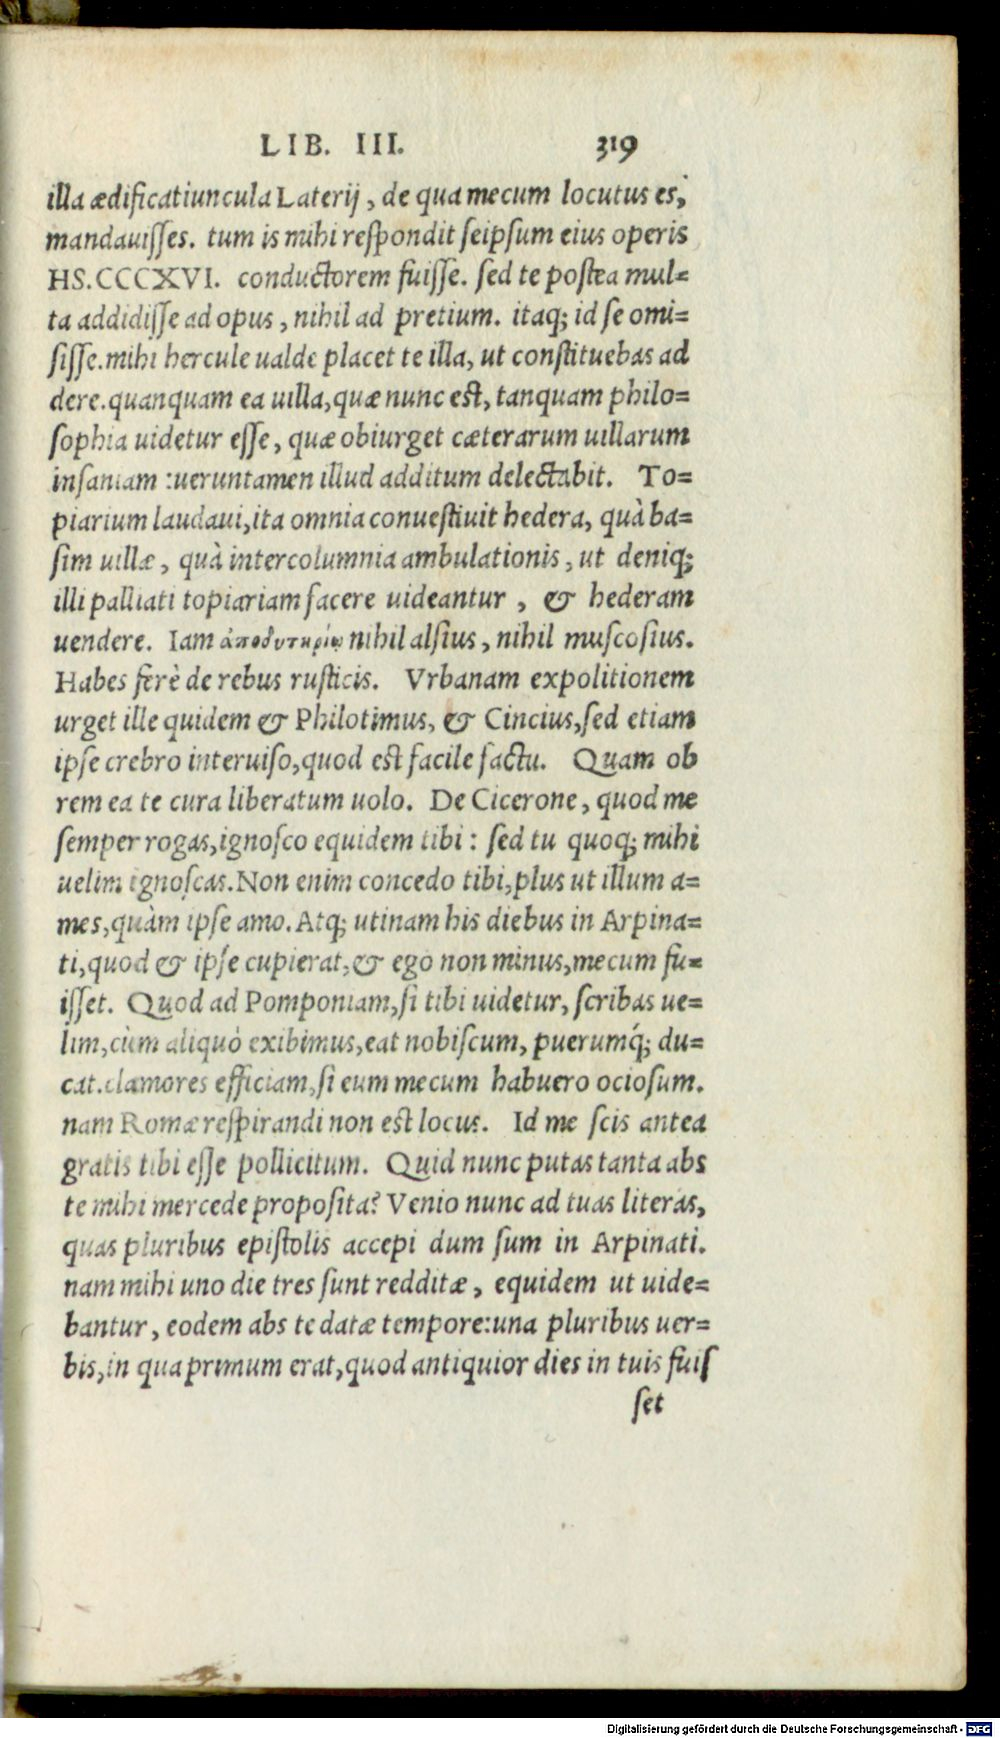 LIB. III. 319
illa ædificatiuncula Laterij, de qua mecum locutus es,
mandauiſſes. tum is mihi reſpondit ſeipſum eius operis
HS. CCCXVI. conductorem fuiſſe. ſed te poſtea mul=
ta addidiſſe ad opus, nihil ad pretium. itaq; id ſe omi=
ſiſſe. mihi hercule ualde placet te illa, ut conſtituebas ad
dere. quanquam ea uilla, quæ nunc eſt, tanquam philo=
ſophia uidetur eſſe, quæ obiurget cæterarum uillarum
inſaniam : ueruntamen illud additum delectabit. To=
piarium laudaui, ita omnia conueſtiuit hedera, quà ba=
ſim uillæ, quà intercolumnia ambulationis, ut deniq;
illi palliati topiariam facere uideantur, & hederam
uendere. Iam ἀποδυτηρίῳ nihil alſius, nihil muſcoſius.
Habes ferè de rebus ruſticis. Vrbanam expolitionem
urget ille quidem & Philotimus, & Cincius, ſed etiam
ipſe crebro interuiſo, quod eſt facile factu. Quam ob
rem ea te cura liberatum uolo. De Cicerone, quod me
ſemper rogas, ignoſco equidem tibi : ſed tu quoq; mihi
uelim ignoſcas. Non enim concedo tibi, plus ut illum a=
mes, quàm ipſe amo. Atq; utinam his diebus in Arpina=
ti, quod & ipſe cupierat, & ego non minus, mecum fu=
iſſet. Quod ad Pomponiam, ſi tibi uidetur, ſcribas ue=
lim, cùm aliquò exibimus, eat nobiſcum, puerumq́; du=
cat. clamores efficiam, ſi eum mecum habuero ocioſum.
nam Romæ reſpirandi non eſt locus. Id me ſcis antea
gratis tibi eſſe pollicitum. Quid nunc putas tanta abs
te mihi mercede propoſita? Venio nunc ad tuas literas,
quas pluribus epiſtolis accepi dum ſum in Arpinati.
nam mihi uno die tres ſunt redditæ, equidem ut uide=
bantur, eodem abs te datæ tempore: una pluribus uer=
bis, in qua primum erat, quod antiquior dies in tuis fuiſ
ſet
Digitalisierung gefördert durch die Deutsche Forschungsgemeinschaft - DFG